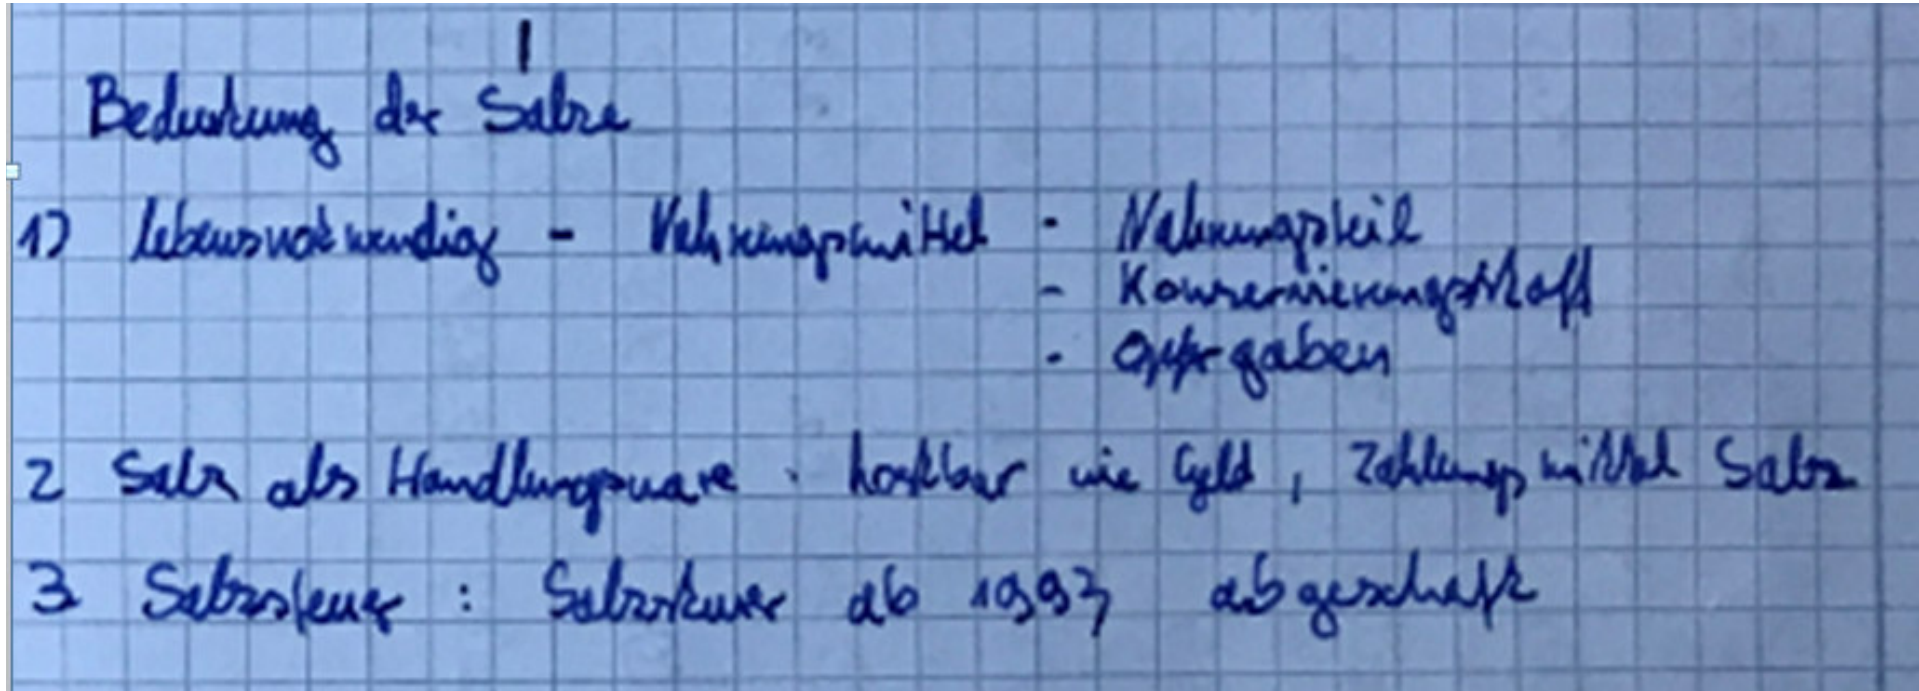 Bedeutung der Salze
1) lebensnotwendig - Nahrungsmittel - Nahrungsteil
- Konservierungsstoff
- Opfergaben
2 Salz als Handlungsware. kostbar wie Geld, Zahlungsmittel Salz
3 Salzsteuer: Salzsteuer ab 1993 abgeschaft